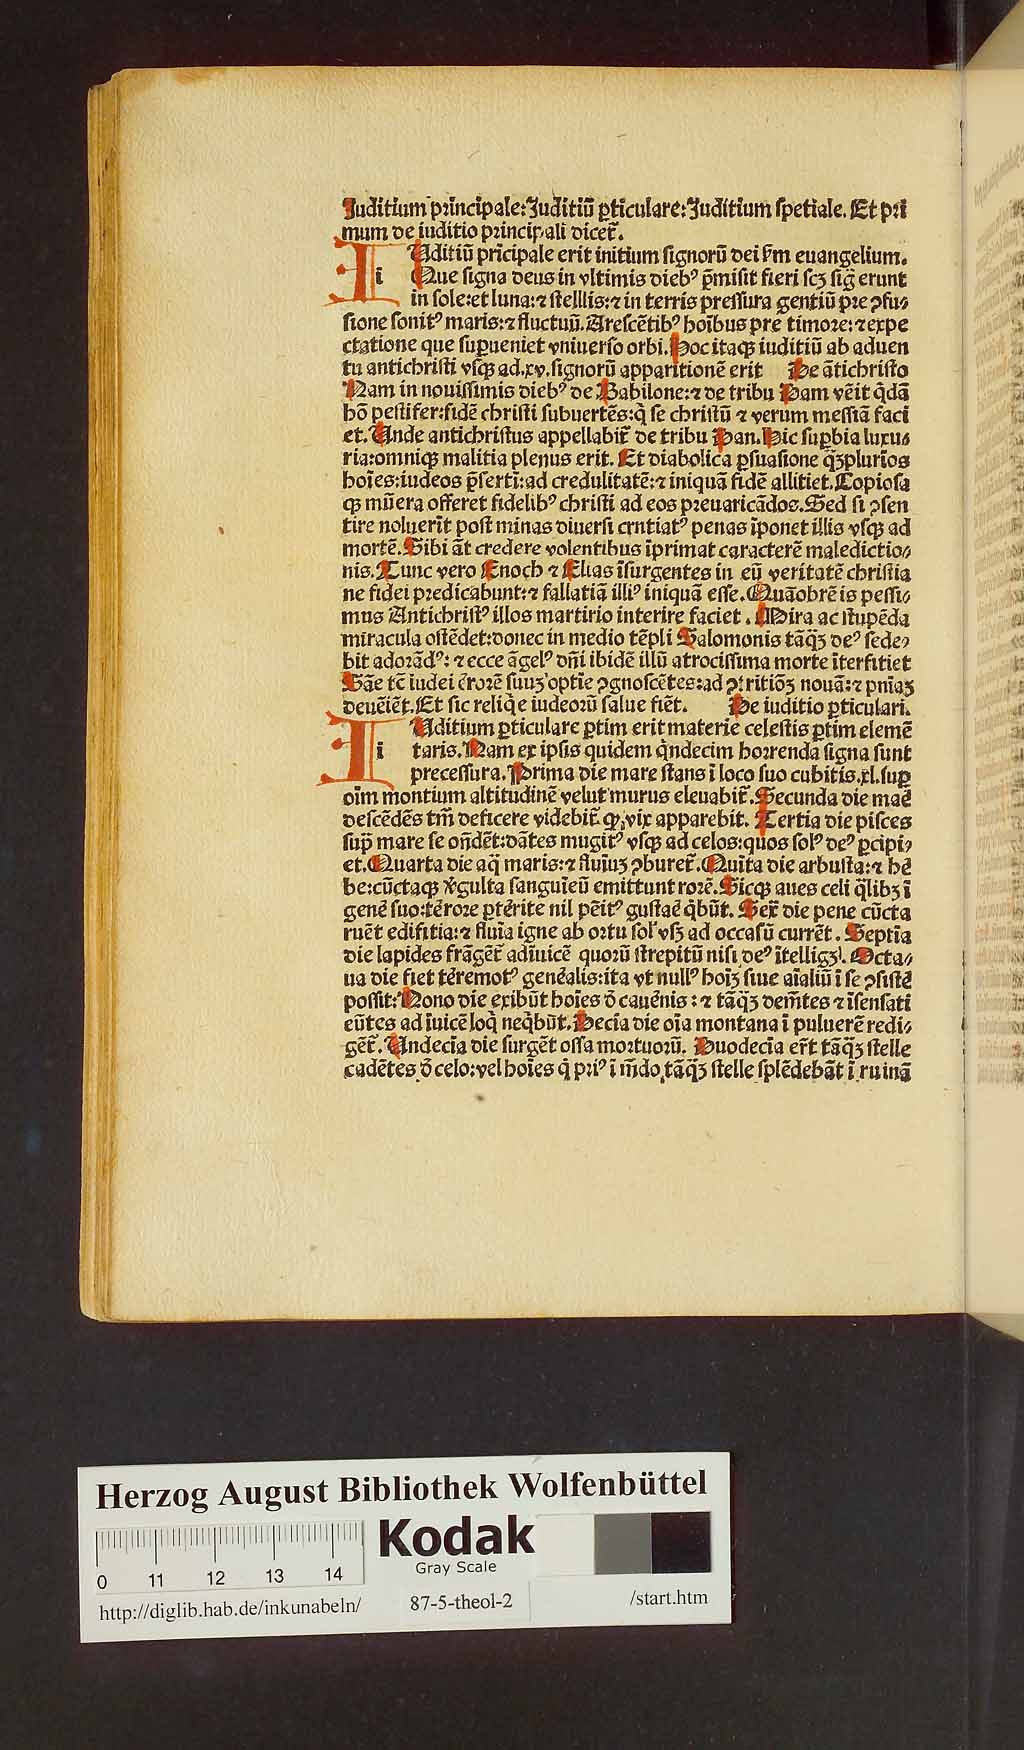 Iuditium principale: Iuditiū ꝑticulare: Iuditium spetiale. Et pri
mum de iuditio principali dicet᷑.
I i Uditiū prīcipale erit initium signorū dei ẜm euangelium.
Que signa deus in vltimis dieb⁹ ꝓmisit fieri scꝫ sig̃ erunt
in sole: et luna: ⁊ stelllis: ⁊ in terris pressura gentiū pre ꝯfu⸗
sione sonit⁹ maris: ⁊ fluctuū. Arescētib⁹ hoībus pre timore: ⁊ expe
ctatione que suꝑueniet vniuerso orbi. Hoc itaqꝫ iuditiū ab aduen
tu antichristi vsqꝫ ad .xv. signorū apparitionē erit De ātichristo
Nam in nouissimis dieb⁹ de Babilone: ⁊ de tribu Dam vēit q̇dā
hō pestifer: fidē christi subuertēs: q̇ se christū ⁊ verum messiā faci
et. Unde antichristus appellabit᷑ de tribu Dan. Hic suꝑbia luxu⸗
ria: omniqꝫ malitia plenus erit. Et diabolica ꝑsuasione q̄ꝫplurīos
hoīes: iudeos p̄serti: ad credulitatē: ⁊ iniquā fidē allitiet. Copiosa
qꝫ mūera offeret fidelib⁹ christi ad eos preuaricādos. Sed si ꝯsen
tire noluerīt post minas diuersi crntiat⁹ penas īponet illis vsqꝫ ad
mortē. Sibi āt credere volentibus īprimat caracterē maledictio⸗
nis. Tunc vero Enoch ⁊ Elias īsurgentes in eū veritatē christia
ne fidei predicabunt: ⁊ fallatiā illi⁹ iniquā esse. Quāobrē is pessi⸗
mus Antichrist⁹ illos martirio interire faciet. Mira ac stupēda
miracula ostēdet: donec in medio tēpli Salomonis tāq̄ꝫ de⁹ sede⸗
bit adorād⁹: ⁊ ecce āgel⁹ dn̄i ibidē illū atrocissima morte īterfitiet
Sāe tē iudei érorē suuꝫ optīe ꝯgnoscētes: ad ꝯtritiōꝫ nouā: ⁊ pn̄iaꝫ
deuēiēt. Et sic reliq̇e iudeorū salue fiēt. De iuditio ꝑticulari.
I i Uditium ꝑticulare ꝑtim erit materie celestis ꝑtim elemē
taris. Nam ex ipsis quidem q̇ndecim horrenda signa sunt
precessura. Prima die mare stans ī loco suo cubitis .xl. suꝑ
oīm montium altitudinē velut murus eleuabit᷑. Secunda die maé
descēdēs tm̄ deficere videbit᷑ ꝙ vix apparebit. Tertia die pisces
suꝑ mare se on̄dēt: dātes mugit⁹ vsqꝫ ad celos: quos sol⁹ de⁹ ꝑcipi⸗
et. Quarta die aq̄ maris: ⁊ fluīuꝫ ꝯburet᷑. Quīta die arbusta: ⁊ hé
be: cūctaqꝫ v́gulta sanguieū emittunt rorē. Sicqꝫ aues celi q̄libꝫ ī
gené suo: térore ꝑtérite nil pēit⁹ gustaé q̇būt. Sex᷑ die pene cūcta
ruēt edifitia: ⁊ fluīa igne ab ortu sol⁹ vsꝫ ad occasū currēt. Septīa
die lapides frāgēt᷑ adīuicē quorū strepitū nisi de⁹ ītelligꝫ. Octa⸗
ua die fiet téremot⁹ genéalis: ita vt null⁹ hoīꝫ siue aīaliū ī se ꝯsisté
possit: Nono die exibūt hoīes ð cauénis: ⁊ tāq̄ꝫ demētes ⁊ īsensati
eūtes ad īuicē loq̇ neq̇būt. Decīa die oīa montana ī puluerē redi⸗
gēt᷑. Undecīa die surgēt ossa mortuorū. Duodecīa er̄t tāq̄ꝫ stelle
cadētes ð celo: vel hoīes q̇ pri⁹ ī mūdo tāq̄ꝫ stelle splēdebāt ī ruinā
Herzog August Bibliothek Wolfenbüttel
Kodak
Gray Scale
0 11 12 13 14
http://diglib.hab.de/inkunabeln/ 87-5-theol-2 /start.htm